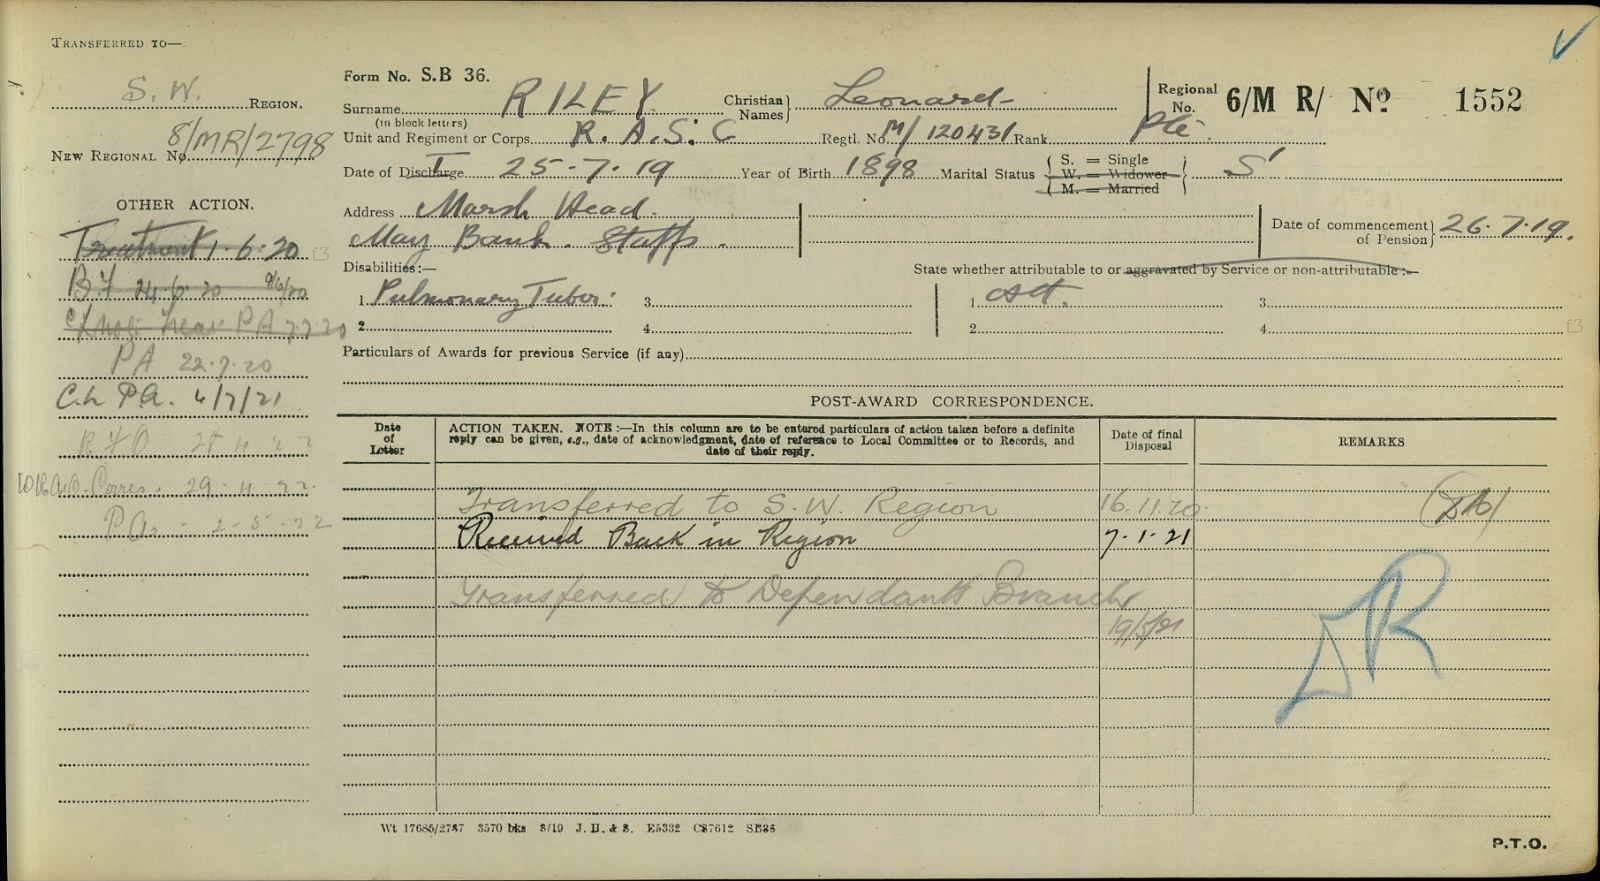 TRANSFERRED TO—
S. W. REGION.
8/MR/2798
NEW REGIONAL No.
OTHER ACTION.
Treatment 1.6.20
B.F 24.6.20 9/6/20
PA 7.7.20
PA 22.7.20
C.L P.A. 4/7/21
Corres. 29.11.22
PA. 2-5-22
Form No. S.B 36.
Surname RILEY Christian Names} Leonard
(in block letters)
Regional No. 6/M R/ No 1552
Unit and Regiment or Corps R.A.S.C Regtl. No. M/120431 Rank Pte.
Date of Discharge 25-7-19 Year of Birth 1898 Marital Status { S. = Single W. = Widower M. = Married } S
Address Marsh Head.
May Bank. Staffs.
Date of commencement of Pension} 26.7.19.
Disabilities:— State whether attributable to or aggravated by Service or non-attributable:—
1 Pulmonary Tuber: 3 1. Att. 3
2 4 2 4
Particulars of Awards for previous Service (if any)
POST-AWARD CORRESPONDENCE.
Date of Letter
ACTION TAKEN. NOTE:—In this column are to be entered particulars of action taken before a definite
reply can be given, e.g., date of acknowledgment, date of reference to Local Committee or to Records, and
date of their reply.
Date of final Disposal
REMARKS
Transferred to S.W. Region 16.11.20.
Received Back in Region 7.1.21
Transferred to Dependants Branch
19/5/21
Wt 17685/2787 3570 bks 8/19 J. H. & S. E5332 C87612 SB36
P.T.O.